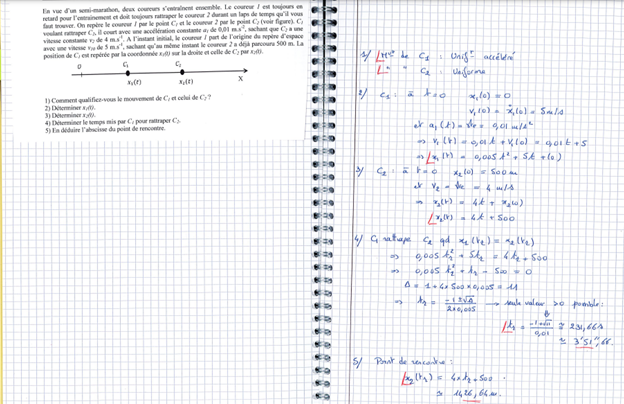 En vue d'un semi-marathon, deux coureurs s'entraînent ensemble. Le coureur 1 est toujours en
retard pour l'entraînement et doit toujours rattraper le coureur 2 durant un laps de temps qu'il vous
faut trouver. On repère le coureur 1 par le point C₁ et le coureur 2 par le point C₂ (voir figure). C₁
voulant rattraper C₂, il court avec une accélération constante a₁ de 0,01 m.s⁻², sachant que C₂ a une
vitesse constante v₂ de 4 m.s⁻¹. A l'instant initial, le coureur 1 part de l'origine du repère d'espace
avec une vitesse v₁₀ de 5 m.s⁻¹, sachant qu'au même instant le coureur 2 a déjà parcouru 500 m. La
position de C₁ est repérée par la coordonnée x₁(t) sur la droite et celle de C₂ par x₂(t).
O C₁ C₂
x₁(t) x₂(t) X
1) Comment qualifiez-vous le mouvement de C₁ et celui de C₂ ?
2) Déterminer x₁(t).
3) Déterminer x₂(t).
4) Déterminer le temps mis par C₁ pour rattraper C₂.
5) En déduire l'abscisse du point de rencontre.
1/ de C₁ : Unif^t accéléré
" " C₂ : Uniforme
2/ C₁ : à t=0 x₁(0) = 0
v₁(0) = ẋ₁(0) = 5 m/s
et a₁(t) = cte = 0,01 m/s²
⇒ v₁(t) = 0,01 t + v₁(0) = 0,01 t + 5
⇒ x₁(t) = 0,005 t² + 5t + (0)
3/ C₂ : à t=0 x₂(0) = 500 m
et v₂ = cte = 4 m/s
⇒ x₂(t) = 4t + x₂(0)
x₂(t) = 4t + 500
4/ C₁ rattrape C₂ qd x₁(t₂) = x₂(t₂)
⇒ 0,005 t₂² + 5t₂ = 4t₂ + 500
⇒ 0,005 t₂² + t₂ - 500 = 0
Δ = 1 + 4 × 500 × 0,005 = 11
⇒ t₂ = (-1 ± √Δ)/(2×0,005) → seule valeur >0 possible :
t₂ = (-1+√11)/0,01 ≃ 231,66 s
≃ 3'51",66
5/ Point de rencontre :
x₂(t₂) = 4×t₂ + 500
≃ 1426,64 m.